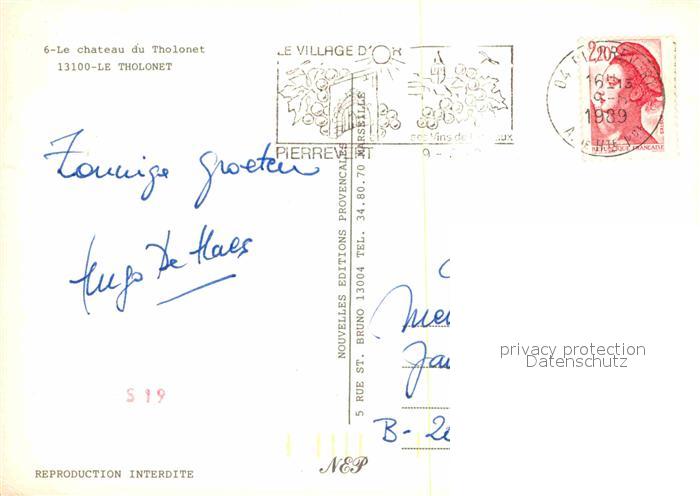 6-Le chateau du Tholonet
13100-LE THOLONET
LE VILLAGE D'OR
ses Vins de
PIERREVERT
2,20
1989
REPUBLIQUE FRANCAISE
Zonnige groeten
Hugo De Maes
S 19
NOUVELLES EDITIONS PROVENCALES
5 RUE ST. BRUNO 13004 TEL. 34.80.70 MARSEILLE
B-
privacy protection
Datenschutz
REPRODUCTION INTERDITE
NEP